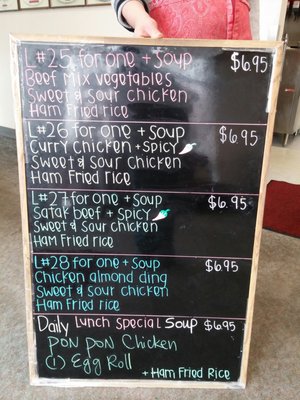 L#25 for one + Soup $6.95
Beef Mix vegetables
Sweet & Sour chicken
Ham Fried rice
L#26 for one + Soup $6.95
Curry Chicken + spicy
Sweet & Sour chicken
Ham Fried rice
L#27 for one + Soup $6.95
Satak beef + spicy
Sweet & Sour chicken
Ham Fried rice
L#28 for one + Soup $6.95
Chicken almond ding
Sweet & Sour chicken
Ham Fried rice
Daily Lunch Special Soup $6.95
Pon Pon Chicken
(1) Egg Roll
+ Ham Fried Rice